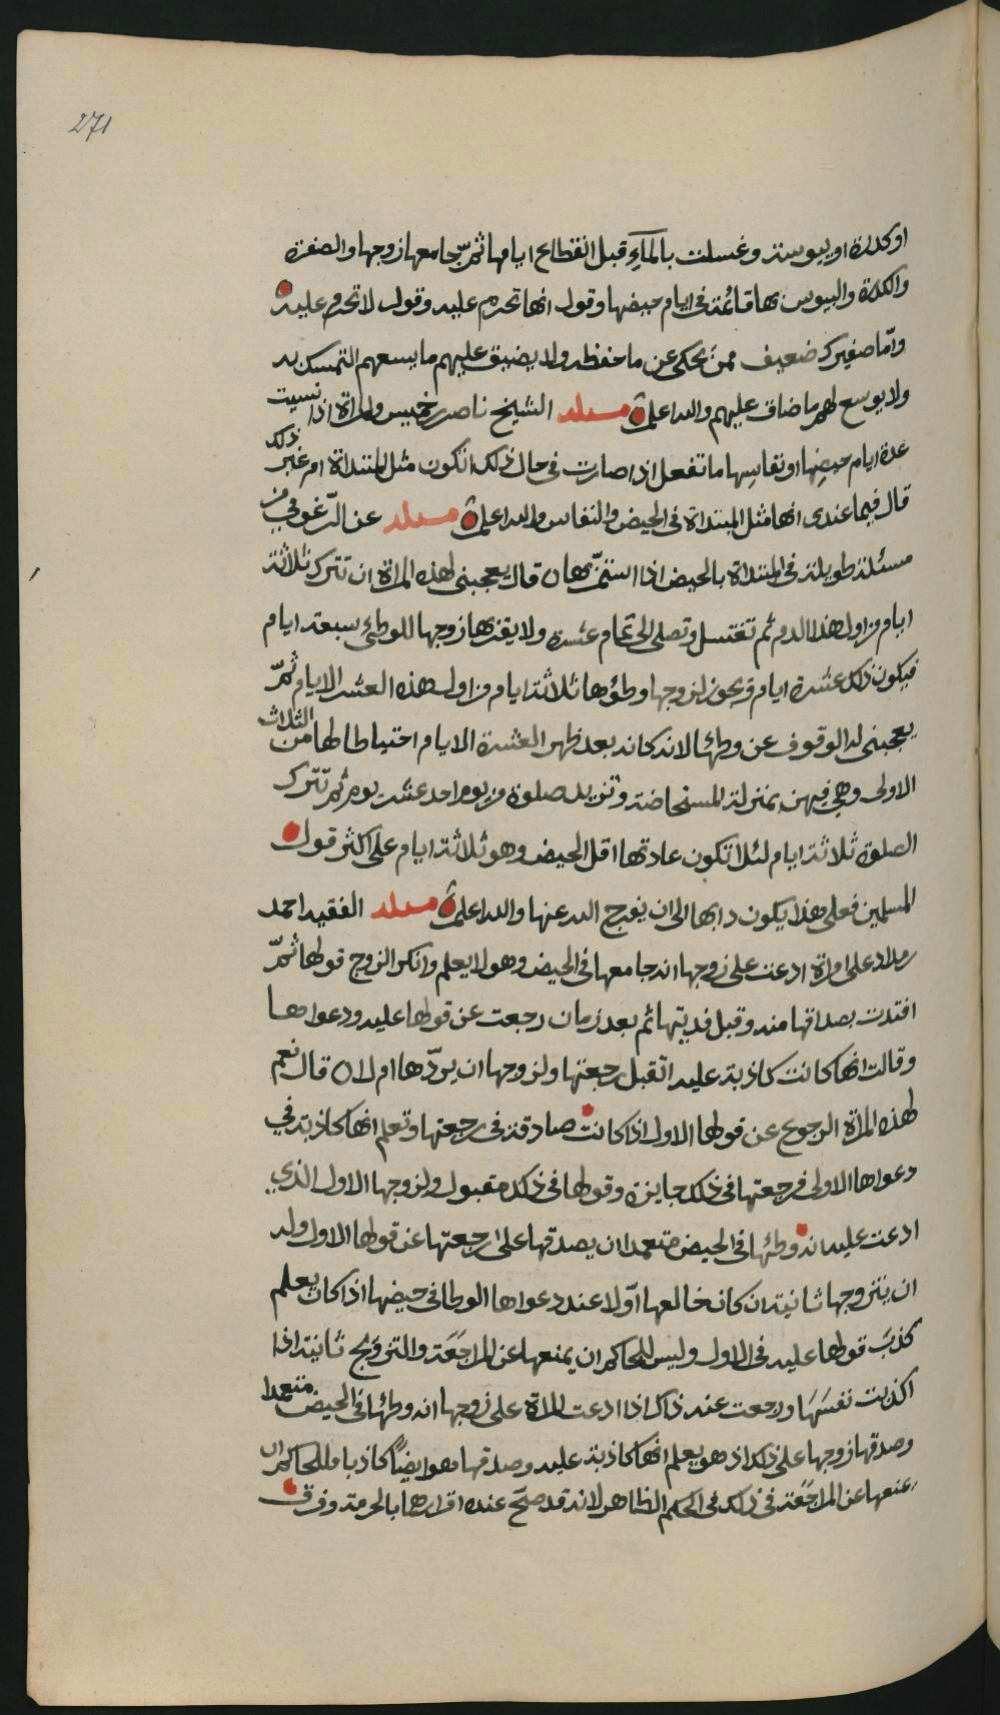 271
او كدرة او يبوسة وغسلت بالمآء قبل انقطاع ايامها ثمّ جامعها زوجها والصفرة
والكدرة واليبوس هاقائمة في ايام حيضها وقول انها تحرم عليه وقول لا تحرم عليه
وامّا صفيرك ضعيف ممن يحكى عن ما حفظه ولا يضيق عليهم ما يسعهم التمسك به
ولا يوسع لهم ما ضاق عليهم والله اعلم مسئلة الشيخ ناصر بن خميس والمراة اذا نسيت
عدة ايام حيضها او نفاسها ما تفعل اذا صارت في حال ذلك اتكون مثل المبتداة ام غير ذلك
قال فيما عندى انها مثل المبتداة في الحيض والنفاس والله اعلم مسئلة عن الرّغومي من
مسئلة طويلة في المبتداة بالحيض اذا استتمّ بها قال يعجبني لهذه المراة ان تترك ثلاثة
ايام من اول هذا الدم ثم تغتسل وتصلى الى تمام عشرة ولا يقربها زوجها للوطئ سبعة ايام
فيكون ذلك عشرة ايام ويجوز لزوجها وطؤها ثلاثة ايام من اول هذه العشر الايام ثمّ
يعجبني له الوقوف عن وطئها لانه كانه بعد طهر العشرة الايام احتياطا لها من الثلاث
الاولى وهي فيهن بمنزلة المستحاضة وتزيد صلوة من يوم احد عشر يوم ثم تترك
الصلوة ثلاثة ايام لئلا تكون عادتها اقل الحيض وهو ثلاثة ايام على اكثر قول
المسلمين فعلى هذا يكون دابها الى ان يفرج الله عنها والله اعلم مسئلة الفقيه احمد
بن مداد على امراة ادعت على زوجها انه جامعها في الحيض وهو لا يعلم وانكر الزوج قولها ثمّ
افتدت بصداقها منه وقبل فديتها ثم بعد زمان رجعت عن قولها عليه ودعواها
وقالت انها كانت كاذبة عليه اتقبل رجعتها ولزوجها ان يردّها ام لا قال نعم
لهذه المراة الرجوع عن قولها الاول اذا كانت صادقة في رجعتها وتعلم انها كاذبة في
دعواها الاولى فرجعتها في ذلك جايزة وقولها في ذلك مقبول ولزوجها الاول الذي
ادعت عليه انه وطئها في الحيض متعمدا ان يصدقها على رجعتها عن قولها الاول وله
ان يتزوجها ثانية ان كان خالعها اوّلا عند دعواها الوطا في حيضها اذا كان يعلم
كذبَ قولها عليه في الاول وليس للحاكم ان يمنعها عن المراجَعَة والتزويج ثانية اذا
اكذبت نفسَهَا ورجعت عند ذلك اذا ادعت المراة على زوجها انه وطئها في الحيض متعمدا
وصدقها زوجها على ذلك اذ هو يعلم انها كاذبة عليه وصدقها هو ايضًا كاذبا فللحاكم ان
يمنعها عن المراجَعَة في ذلك في الحكم الظاهر لانه قد صحّ عنده اقرارهما بالحرمة وفرق